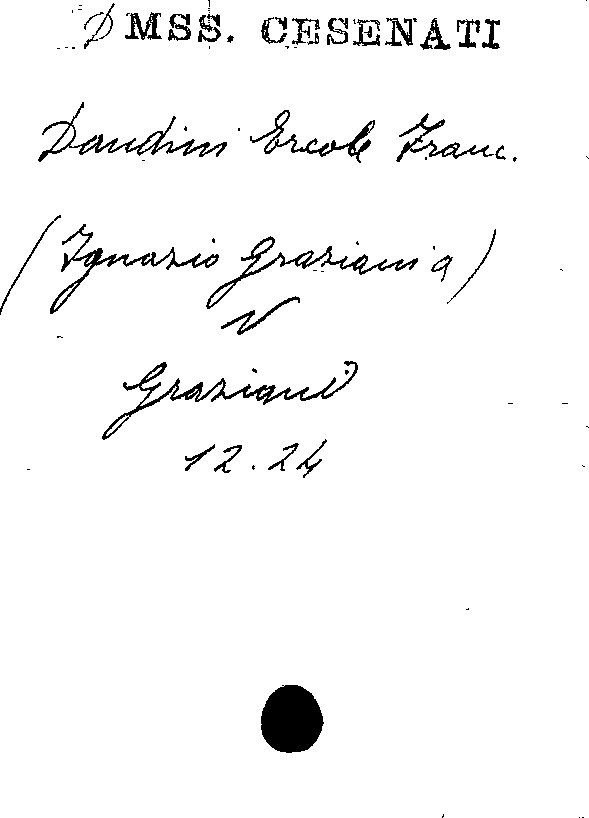 D MSS. CESENATI
Dandini Ercole Franc.
(Ignazio Graziani a)
V
Graziani
12.24